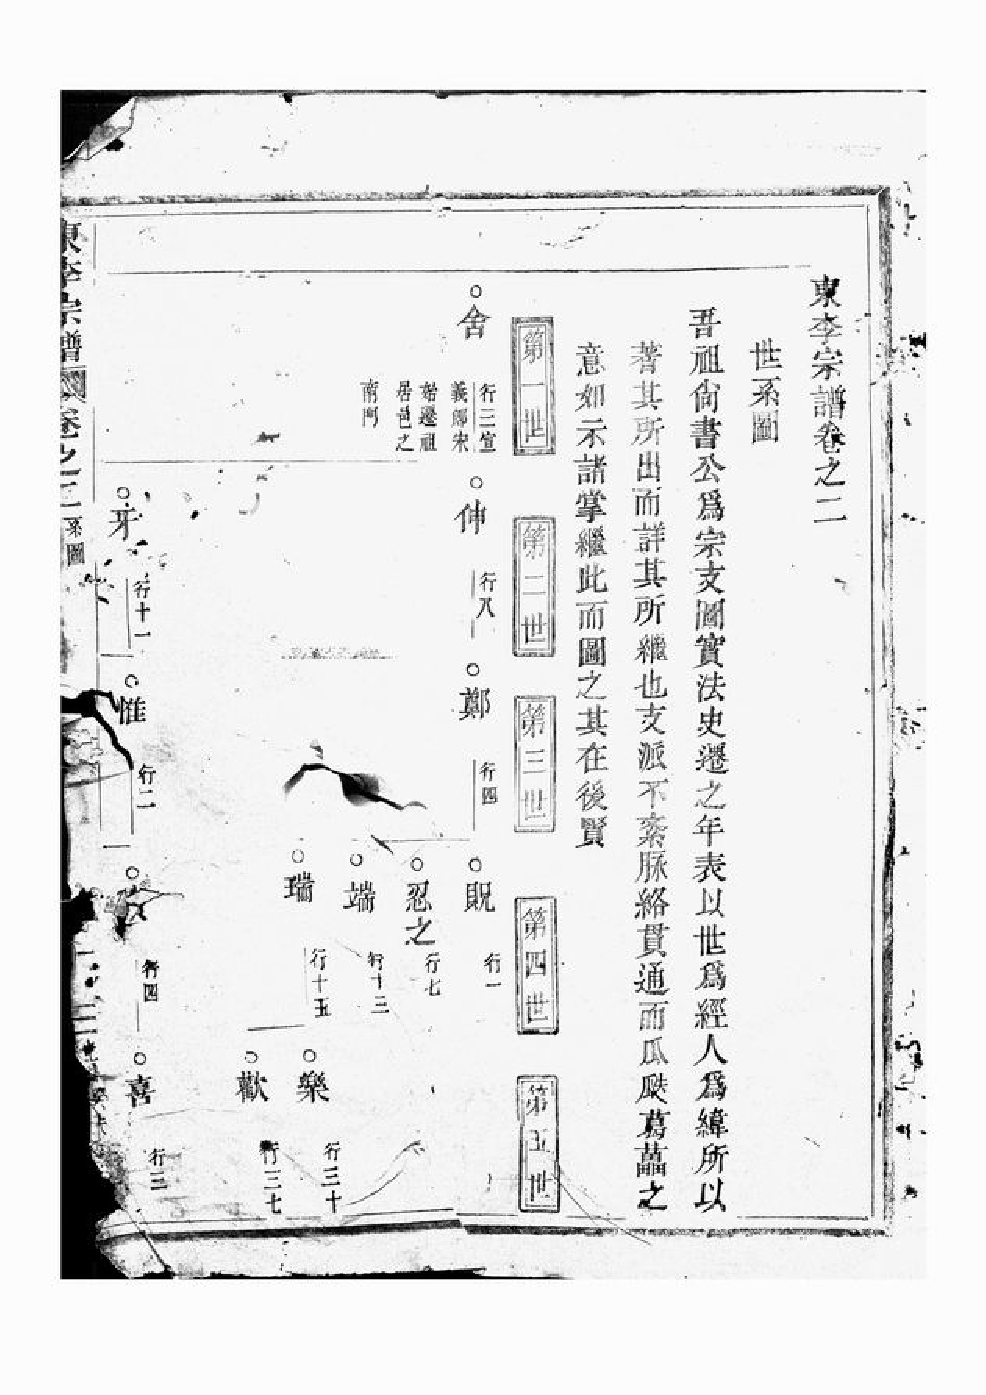 東李宗譜卷之二
世系圖
吾祖尙書公爲宗支圖實法史遷之年表以世爲經人爲緯所以
著其所出而詳其所繼也支派不紊脉絡貫通而瓜瓞葛藟之
意如示諸掌繼此而圖之其在後賢
第一世
第二世
第三世
第四世
第五世
舍
行三宣
義郎宋
始遷祖
居邑之
南門
伸
行八
鄭
行四
貺
行一
忍之
行七
端
行十三
瑞
行十五
樂
行三十
歡
行三七
牙
行十一
惟
行二
行四
喜
行三
東李宗譜 卷之二 系圖